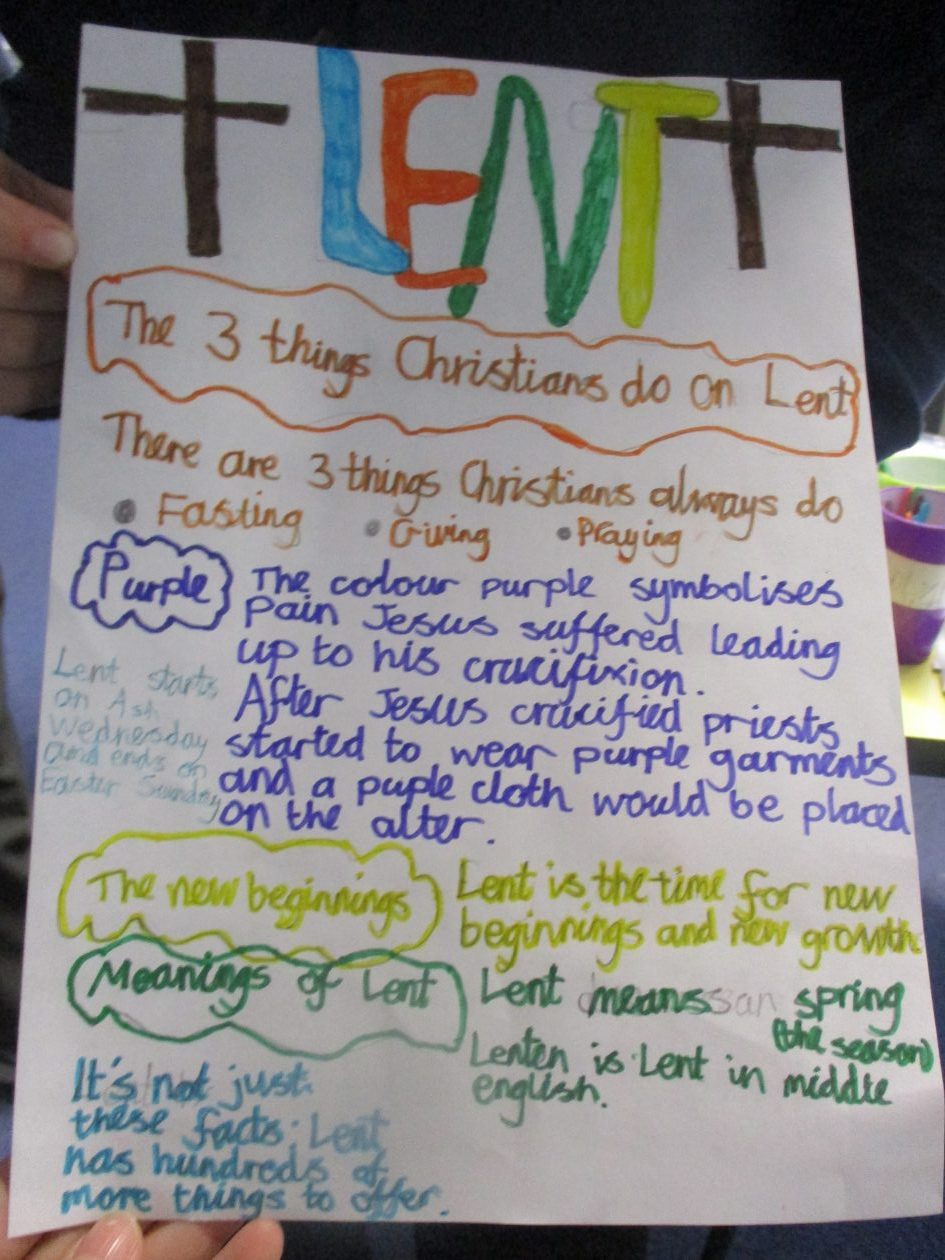 LENT
The 3 things Christians do on Lent
There are 3 things Christians always do
• Fasting • Giving • Praying
Purple
The colour purple symbolises
Pain Jesus suffered leading
up to his crucifixion.
After Jesus crucified priests
started to wear purple garments
and a puple cloth would be placed
on the alter.
Lent starts
on Ash
Wednesday
and ends on
Easter Sunday
The new beginnings
Lent is the time for new
beginnings and new growth
Meanings of Lent
Lent means spring
(the season)
Lenten is Lent in middle
english.
It's not just
these facts. Lent
has hundreds of
more things to offer.